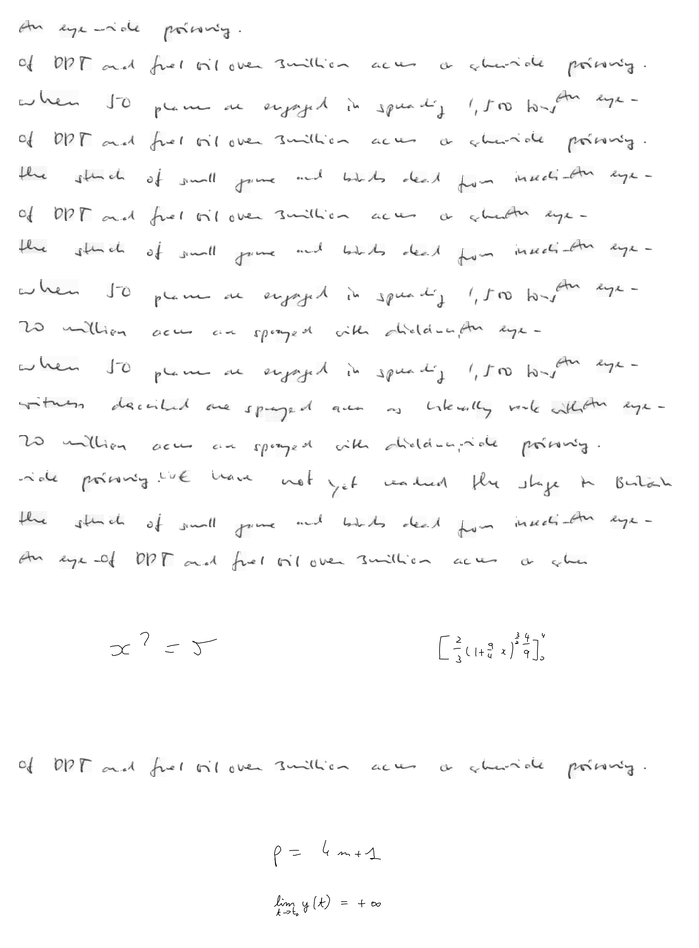 An eye-cide poisoning.
of DDT and fuel oil over 3 million acres or when-cide poisoning.
when 50 planes are engaged in spreading 1,500 tons An eye-
of DDT and fuel oil over 3 million acres or when-cide poisoning.
the stench of small game and birds dead from insecti-An eye-
of DDT and fuel oil over 3 million acres or when An eye-
the stench of small game and birds dead from insecti-An eye-
when 50 planes are engaged in spreading 1,500 tons An eye-
20 million acres are sprayed with dieldrin, An eye-
when 50 planes are engaged in spreading 1,500 tons An eye-
witness described one sprayed area as literally rank with An eye-
20 million acres are sprayed with dieldrin,-cide poisoning.
-cide poisoning. WE have not yet reached the stage in Britain
the stench of small game and birds dead from insecti-An eye-
An eye-of DDT and fuel oil over 3 million acres or when
x^? = 5
[\frac{2}{3}(1+\frac{9}{4}x)^{\frac{3}{2}}\frac{4}{9}]_0^4
of DDT and fuel oil over 3 million acres or when-cide poisoning.
p = 4m+1
\lim_{t→t_0} y(t) = +∞